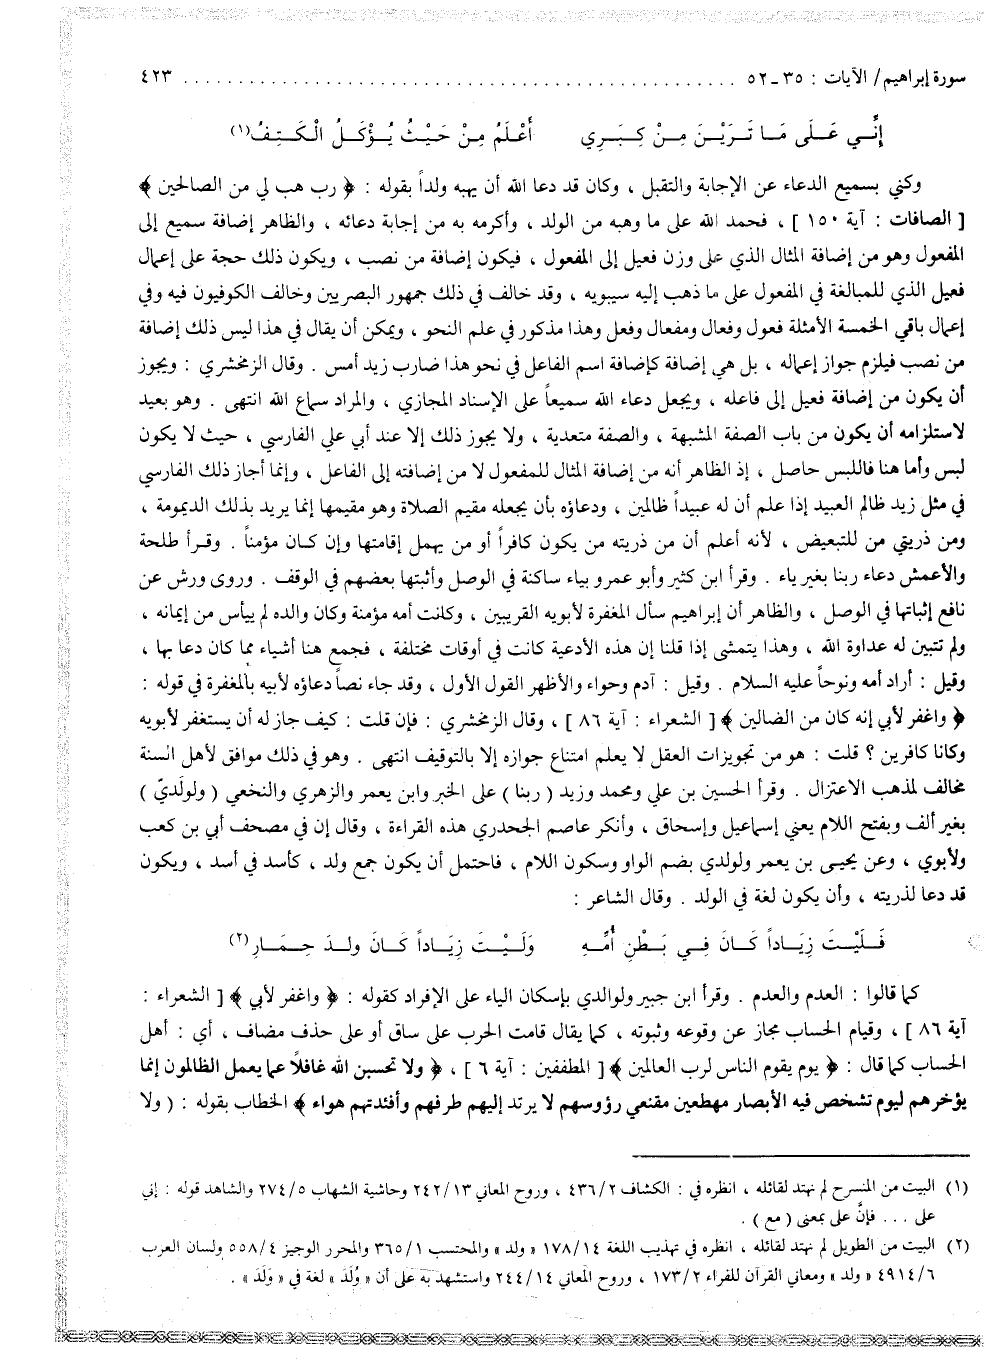 سورة إبراهيم/ الآيات : ٣٥ـ٥٢ ................................................ ٤٢٣
إِنَّي عَلَى مَا تَرَيْنَ مِنْ كِبَرِي أَعْلَمُ مِنْ حَيْثُ يُؤْكَلُ الْكَتِفُ(١)
وكني بسميع الدعاء عن الإجابة والتقبل ، وكان قد دعا الله أن يهبه ولداً بقوله : ﴿ رب هب لي من الصالحين ﴾
[ الصافات : آية ١٥٠ ] ، فحمد الله على ما وهبه من الولد ، وأكرمه به من إجابة دعائه ، والظاهر إضافة سميع إلى
المفعول وهو من إضافة المثال الذي على وزن فعيل إلى المفعول ، فيكون إضافة من نصب ، ويكون ذلك حجة على إعمال
فعيل الذي للمبالغة في المفعول على ما ذهب إليه سيبويه ، وقد خالف في ذلك جمهور البصريين وخالف الكوفيون فيه وفي
إعمال باقي الخمسة الأمثلة فعول وفعال ومفعال وفعل وهذا مذكور في علم النحو ، ويمكن أن يقال في هذا ليس ذلك إضافة
من نصب فيلزم جواز إعماله ، بل هي إضافة كإضافة اسم الفاعل في نحو هذا ضارب زيد أمس . وقال الزمخشري : ويجوز
أن يكون من إضافة فعيل إلى فاعله ، ويجعل دعاء الله سميعاً على الإسناد المجازي ، والمراد سماع الله انتهى . وهو بعيد
لاستلزامه أن يكون من باب الصفة المشبهة ، والصفة متعدية ، ولا يجوز ذلك إلا عند أبي علي الفارسي ، حيث لا يكون
لبس وأما هنا فاللبس حاصل ، إذ الظاهر أنه من إضافة المثال للمفعول لا من إضافته إلى الفاعل ، وإنما أجاز ذلك الفارسي
في مثل زيد ظالم العبيد إذا علم أن له عبيداً ظالمين ، ودعاؤه بأن يجعله مقيم الصلاة وهو مقيمها إنما يريد بذلك الديمومة ،
ومن ذريتي من للتبعيض ، لأنه أعلم أن من ذريته من يكون كافراً أو من يهمل إقامتها وإن كان مؤمناً . وقرأ طلحة
والأعمش دعاء ربنا بغير ياء . وقرأ ابن كثير وأبو عمرو بياء ساكنة في الوصل وأثبتها بعضهم في الوقف . وروى ورش عن
نافع إثباتها في الوصل ، والظاهر أن إبراهيم سأل المغفرة لأبويه القريبين ، وكانت أمه مؤمنة وكان والده لم ييأس من إيمانه ،
ولم تتبين له عداوة الله ، وهذا يتمشى إذا قلنا إن هذه الأدعية كانت في أوقات مختلفة ، فجمع هنا أشياء مما كان دعا بها ،
وقيل : أراد أمه ونوحاً عليه السلام . وقيل : آدم وحواء والأظهر القول الأول ، وقد جاء نصاً دعاؤه لأبيه بالمغفرة في قوله :
﴿ واغفر لأبي إنه كان من الضالين ﴾ [ الشعراء : آية ٨٦ ] ، وقال الزمخشري : فإن قلت : كيف جاز له أن يستغفر لأبويه
وكانا كافرين ؟ قلت : هو من تجويزات العقل لا يعلم امتناع جوازه إلا بالتوقيف انتهى . وهو في ذلك موافق لأهل السنة
مخالف لمذهب الاعتزال . وقرأ الحسين بن علي ومحمد وزيد ( ربنا ) على الخبر وابن يعمر والزهري والنخعي ( ولولَديّ )
بغير ألف وبفتح اللام يعني إسماعيل وإسحاق ، وأنكر عاصم الجحدري هذه القراءة ، وقال إن في مصحف أبي بن كعب
ولأبوي ، وعن يحيى بن يعمر ولولدي بضم الواو وسكون اللام ، فاحتمل أن يكون جمع ولد ، كأسد في أسد ، ويكون
قد دعا لذريته ، وأن يكون لغة في الولد . وقال الشاعر :
فَلَيْتَ زِيَاداً كَانَ فِي بَطْنِ أُمِّهِ وَلَيْتَ زِيَاداً كَانَ ولدَ حِمَارِ(٢)
كما قالوا : العدم والعدم . وقرأ ابن جبير ولوالدي بإسكان الياء على الإفراد كقوله : ﴿ واغفر لأبي ﴾ [ الشعراء :
آية ٨٦ ] ، وقيام الحساب مجاز عن وقوعه وثبوته ، كما يقال قامت الحرب على ساق أو على حذف مضاف ، أي : أهل
الحساب كما قال : ﴿ يوم يقوم الناس لرب العالمين ﴾ [ المطففين : آية ٦ ] ، ﴿ ولا تحسبن الله غافلاً عما يعمل الظالمون إنما
يؤخرهم ليوم تشخص فيه الأبصار مهطعين مقنعي رؤوسهم لا يرتد إليهم طرفهم وأفئدتهم هواء ﴾ الخطاب بقوله : ( ولا
(١) البيت من المنسرح لم نهتد لقائله ، انظره في : الكشاف ٤٣٦/٢ ، وروح المعاني ٢٤٢/١٣ وحاشية الشهاب ٢٧٤/٥ والشاهد قوله : إني
على ... فإنَّ على بمعنى ( مع ) .
(٢) البيت من الطويل لم نهتد لقائله ، انظره في تهذيب اللغة ١٧٨/١٤ « ولد » والمحتسب ٣٦٥/١ والمحرر الوجيز ٥٥٨/٤ ولسان العرب
٤٩١٤/٦ « ولد » ومعاني القرآن للفراء ١٧٣/٢ ، وروح المعاني ٢٤٤/١٤ واستشهد به على أن « وُلْدَ » لغة في « وَلَدَ » .